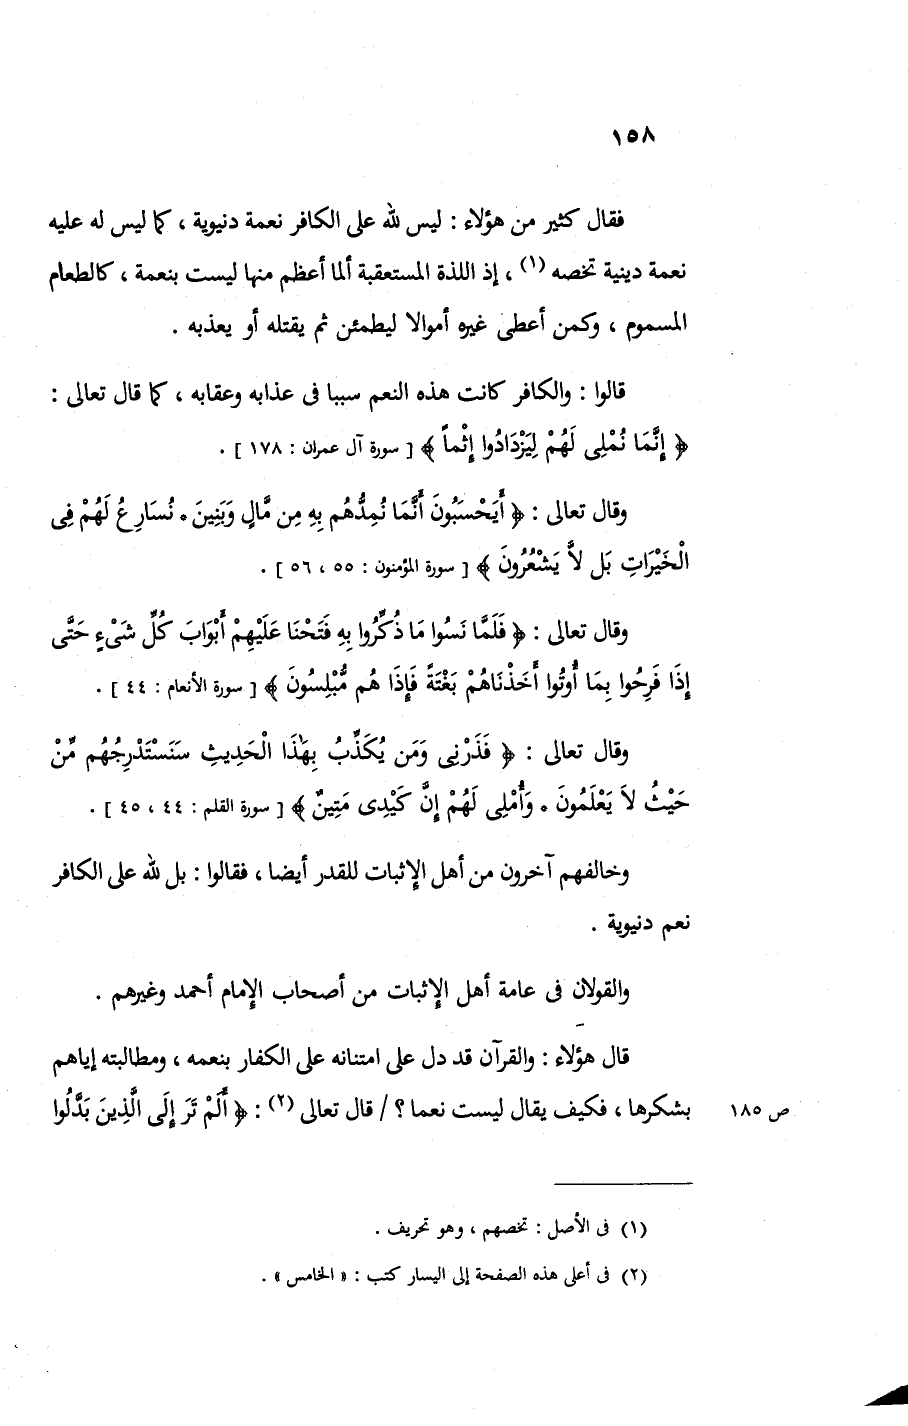 ١٥٨
فقال كثير من هؤلاء : ليس لله على الكافر نعمة دنيوية ، كما ليس له عليه
نعمة دينية تخصه (١) ، إذ اللذة المستعقبة ألما أعظم منها ليست بنعمة ، كالطعام
المسموم ، وكمن أعطى غيره أموالا ليطمئن ثم يقتله أو يعذبه .
قالوا : والكافر كانت هذه النعم سببا فى عذابه وعقابه ، كما قال تعالى :
﴿ إِنَّمَا نُمْلِى لَهُمْ لِيَزْدَادُوا إِثْماً ﴾ [ سورة آل عمران : ١٧٨ ] .
وقال تعالى : ﴿ أَيَحْسَبُونَ أَنَّمَا نُمِدُّهُم بِهِ مِن مَّالٍ وَبَنِينَ * نُسَارِعُ لَهُمْ فِى
الْخَيْرَاتِ بَل لاَّ يَشْعُرُونَ ﴾ [ سورة المؤمنون : ٥٥ ، ٥٦ ] .
وقال تعالى : ﴿ فَلَمَّا نَسُوا مَا ذُكِّرُوا بِهِ فَتَحْنَا عَلَيْهِمْ أَبْوَابَ كُلِّ شَىْءٍ حَتَّى
إِذَا فَرِحُوا بِمَا أُوتُوا أَخَذْنَاهُمْ بَغْتَةً فَإِذَا هُم مُّبْلِسُونَ ﴾ [ سورة الأنعام : ٤٤ ] .
وقال تعالى : ﴿ فَذَرْنِى وَمَن يُكَذِّبُ بِهَٰذَا الْحَدِيثِ سَنَسْتَدْرِجُهُم مِّنْ
حَيْثُ لاَ يَعْلَمُونَ * وَأُمْلِى لَهُمْ إِنَّ كَيْدِى مَتِينٌ ﴾ [ سورة القلم : ٤٤ ، ٤٥ ] .
وخالفهم آخرون من أهل الإثبات للقدر أيضا ، فقالوا : بل لله على الكافر
نعم دنيوية .
والقولان فى عامة أهل الإثبات من أصحاب الإمام أحمد وغيرهم .
قال هؤلاء : والقرآن قد دل على امتنانه على الكفار بنعمه ، ومطالبته إياهم
بشكرها ، فكيف يقال ليست نعما ؟ / قال تعالى (٢) : ﴿ أَلَمْ تَرَ إِلَى الَّذِينَ بَدَّلُوا
ص ١٨٥
(١) فى الأصل : تخصهم ، وهو تحريف .
(٢) فى أعلى هذه الصفحة إلى اليسار كتب : « الخامس » .